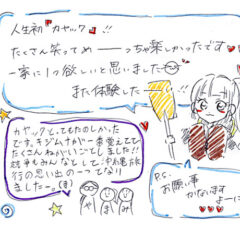 人生初 カヤック !!
たくさん笑ってめーーっちゃ楽しかったです
一家に1つ欲しいと思いました
また体験したーーい!!
カヤックとってもたのしかった
です。キジムナが一番覚えてて
たくさんねがいごとしました!!
みんなとして沖縄旅
行の思い出の一つになり
ましたー。
P.S.
お願い事
かないますよーに
やまみ